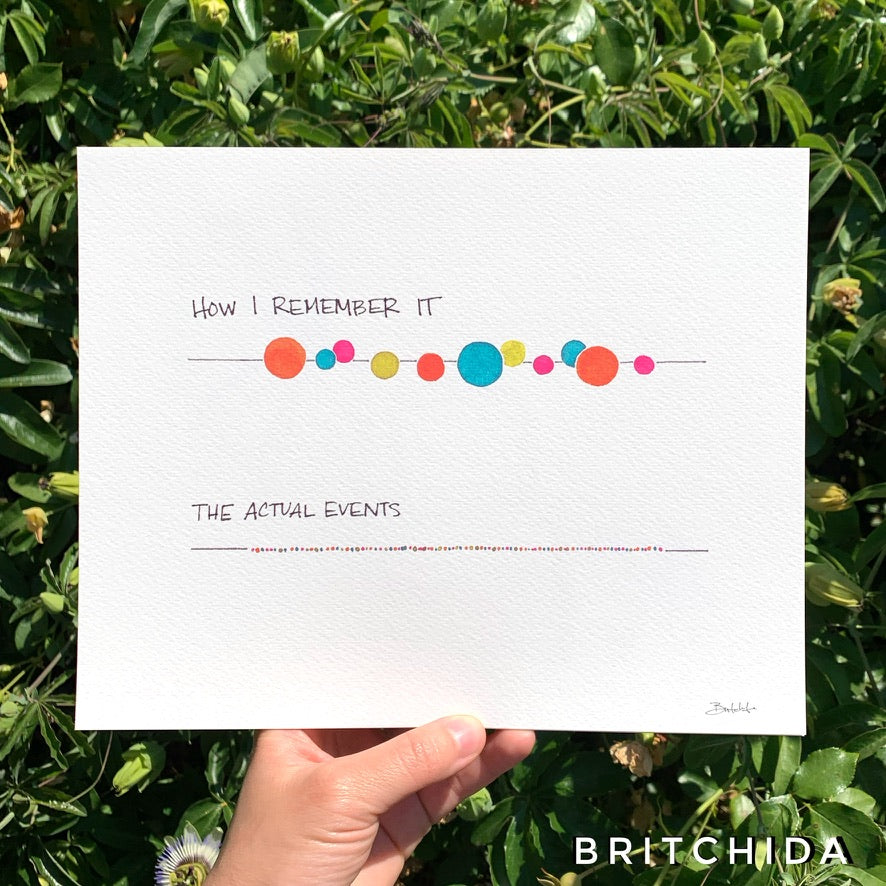 HOW I REMEMBER IT
THE ACTUAL EVENTS
Britchida
BRITCHIDA